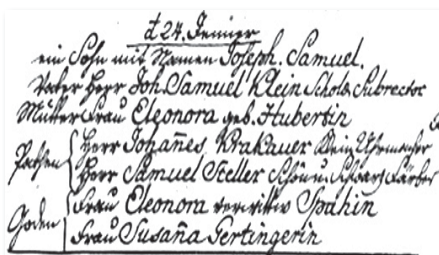 d 24. Jenner
ein Sohn mit Namen Joseph. Samuel.
Vater Herr Joh. Samuel Klein Schola Subrector
Mutter Frau Eleonora geb. Hubertin
Pathen Herr Johannes Krakauer Klein Uhrmacher
Herr Samuel Steller Schön u. Schwarz Färber
Goden Frau Eleonora verwittw Spahin
Frau Susaña Gertingerin